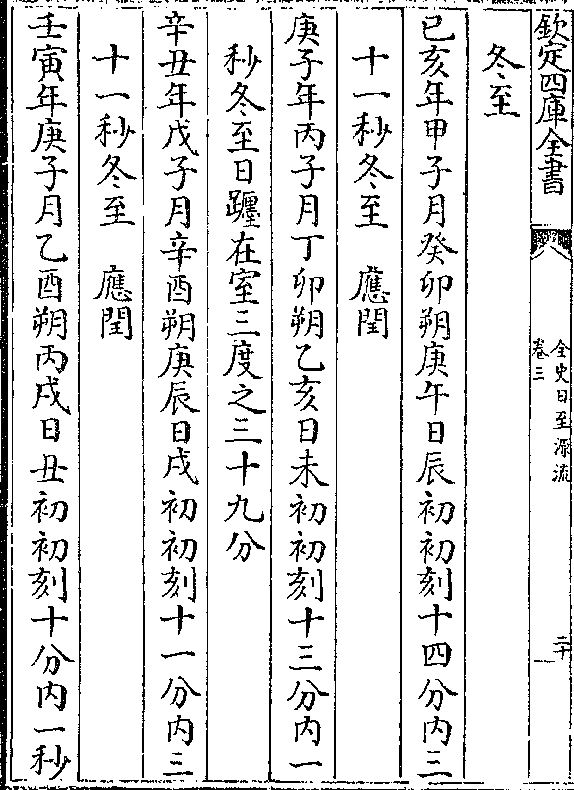 欽定四庫全書
全史日至源流
卷三
二十一
冬至
已亥年甲子月癸卯朔庚午日辰初初刻十四分內三
十一秒冬至　應閏
庚子年丙子月丁卯朔乙亥日未初初刻十三分內一
秒冬至日躔在室三度之三十九分
辛丑年戊子月辛酉朔庚辰日戌初初刻十一分內三
十一秒冬至　應閏
壬寅年庚子月乙酉朔丙戌日丑初初刻十分內一秒